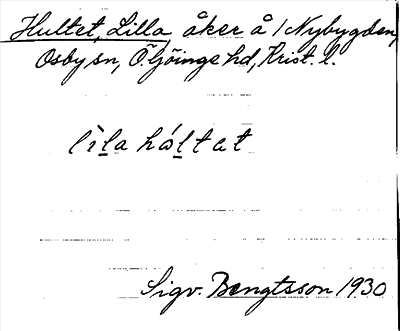 Hultet, Lilla, åker å /Nybygden,
Osby sn, Ö Göinge hd, Krist. l.
lìla hɷ́ltat
Sigv. Bengtsson 1930